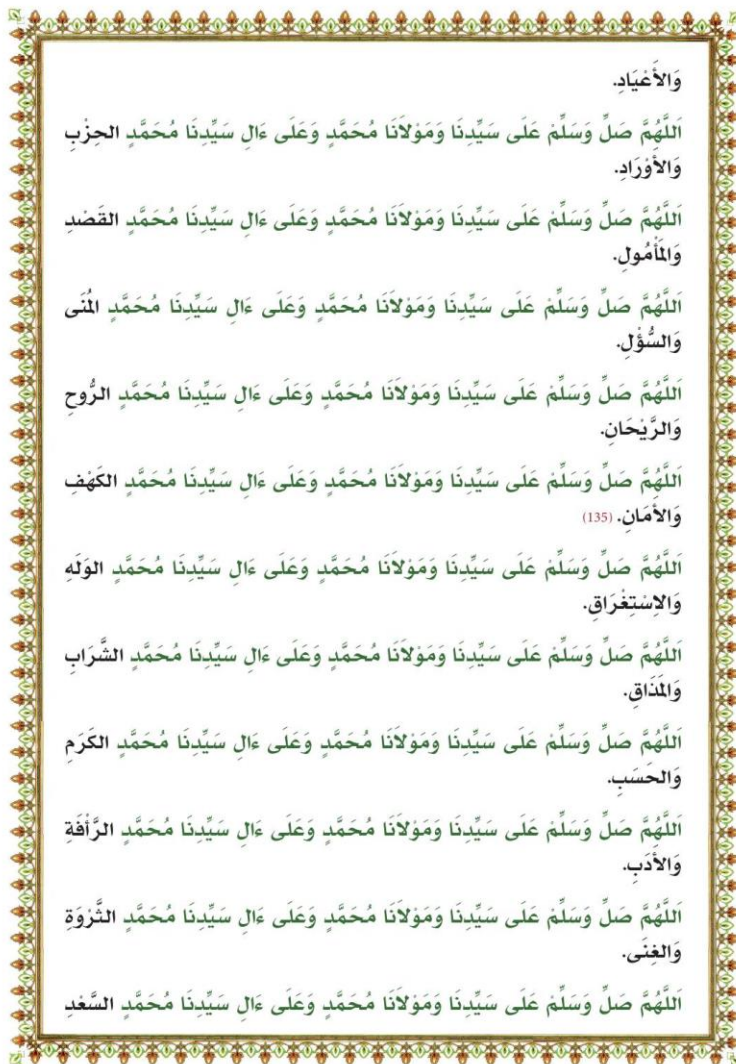 وَالأَعْيَادِ.
اَللَّهُمَّ صَلِّ وَسَلِّمْ عَلَى سَيِّدِنَا وَمَوْلَانَا مُحَمَّدٍ وَعَلَى ءَالِ سَيِّدِنَا مُحَمَّدٍ الحِزْبِ
وَالأَوْرَادِ.
اَللَّهُمَّ صَلِّ وَسَلِّمْ عَلَى سَيِّدِنَا وَمَوْلَانَا مُحَمَّدٍ وَعَلَى ءَالِ سَيِّدِنَا مُحَمَّدٍ القَصْدِ
وَالمَأْمُولِ.
اَللَّهُمَّ صَلِّ وَسَلِّمْ عَلَى سَيِّدِنَا وَمَوْلَانَا مُحَمَّدٍ وَعَلَى ءَالِ سَيِّدِنَا مُحَمَّدٍ المُنَى
وَالسُّؤْلِ.
اَللَّهُمَّ صَلِّ وَسَلِّمْ عَلَى سَيِّدِنَا وَمَوْلَانَا مُحَمَّدٍ وَعَلَى ءَالِ سَيِّدِنَا مُحَمَّدٍ الرُّوحِ
وَالرَّيْحَانِ.
اَللَّهُمَّ صَلِّ وَسَلِّمْ عَلَى سَيِّدِنَا وَمَوْلَانَا مُحَمَّدٍ وَعَلَى ءَالِ سَيِّدِنَا مُحَمَّدٍ الكَهْفِ
وَالأَمَانِ. (135)
اَللَّهُمَّ صَلِّ وَسَلِّمْ عَلَى سَيِّدِنَا وَمَوْلَانَا مُحَمَّدٍ وَعَلَى ءَالِ سَيِّدِنَا مُحَمَّدٍ الوَلَهِ
وَالِاسْتِغْرَاقِ.
اَللَّهُمَّ صَلِّ وَسَلِّمْ عَلَى سَيِّدِنَا وَمَوْلَانَا مُحَمَّدٍ وَعَلَى ءَالِ سَيِّدِنَا مُحَمَّدٍ الشَّرَابِ
وَالمَذَاقِ.
اَللَّهُمَّ صَلِّ وَسَلِّمْ عَلَى سَيِّدِنَا وَمَوْلَانَا مُحَمَّدٍ وَعَلَى ءَالِ سَيِّدِنَا مُحَمَّدٍ الكَرَمِ
وَالحَسَبِ.
اَللَّهُمَّ صَلِّ وَسَلِّمْ عَلَى سَيِّدِنَا وَمَوْلَانَا مُحَمَّدٍ وَعَلَى ءَالِ سَيِّدِنَا مُحَمَّدٍ الرَّأْفَةِ
وَالأَدَبِ.
اَللَّهُمَّ صَلِّ وَسَلِّمْ عَلَى سَيِّدِنَا وَمَوْلَانَا مُحَمَّدٍ وَعَلَى ءَالِ سَيِّدِنَا مُحَمَّدٍ الثَّرْوَةِ
وَالغِنَى.
اَللَّهُمَّ صَلِّ وَسَلِّمْ عَلَى سَيِّدِنَا وَمَوْلَانَا مُحَمَّدٍ وَعَلَى ءَالِ سَيِّدِنَا مُحَمَّدٍ السَّعْدِ